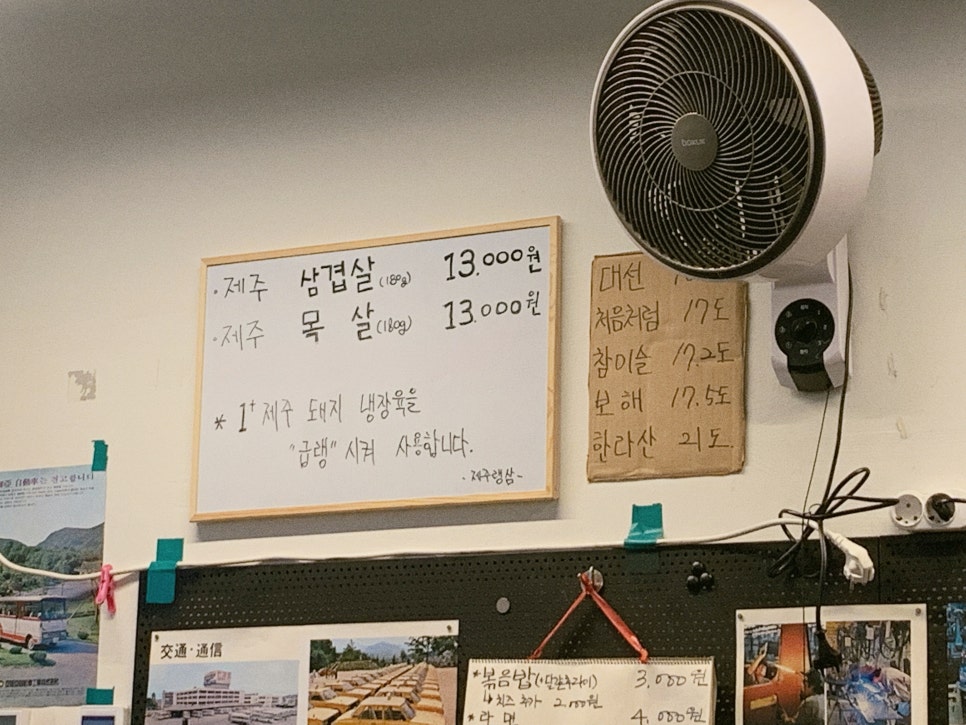 ·제주 삼겹살(180g) 13.000원
·제주 목 살(180g) 13.000원
* 1⁺ 제주 돼지 냉장육을
"급랭" 시켜 사용합니다.
-제주랭삼-
대선
처음처럼 17도
참이슬 17.2도
보해 17.5도
한라산 21도.
交通・通信
*볶음밥
3,000원
치즈 추가 2,000원
*라면 4,000원